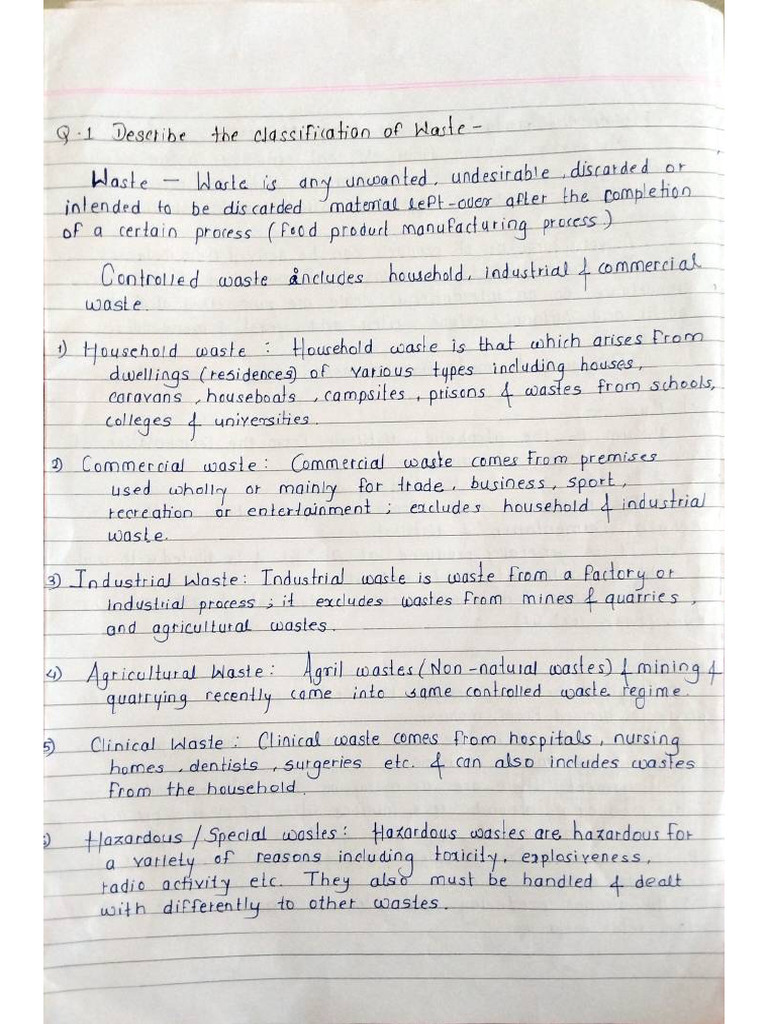 Q.1 Describe the classification of Waste -
Waste — Waste is any unwanted, undesirable, discarded or
intended to be discarded material left-over after the completion
of a certain process (food product manufacturing process)
Controlled waste includes household, industrial & commercial
waste.
1) Household waste : Household waste is that which arises from
dwellings (residences) of various types including houses,
caravans, houseboats, campsites, prisons & wastes from schools,
colleges & universities.
2) Commercial waste : Commercial waste comes from premises
used wholly or mainly for trade, business, sport,
recreation or entertainment ; excludes household & industrial
waste.
3) Industrial Waste : Industrial waste is waste from a factory or
industrial process ; it excludes wastes from mines & quarries,
and agricultural wastes.
4) Agricultural Waste : Agril wastes (Non-natural wastes) & mining &
quarrying recently came into same controlled waste regime.
5) Clinical Waste : Clinical waste comes from hospitals, nursing
homes, dentists, surgeries etc. & can also includes wastes
from the household.
Hazardous / Special wastes : Hazardous wastes are hazardous for
a variety of reasons including toxicity, explosiveness,
radio activity etc. They also must be handled & dealt
with differently to other wastes.